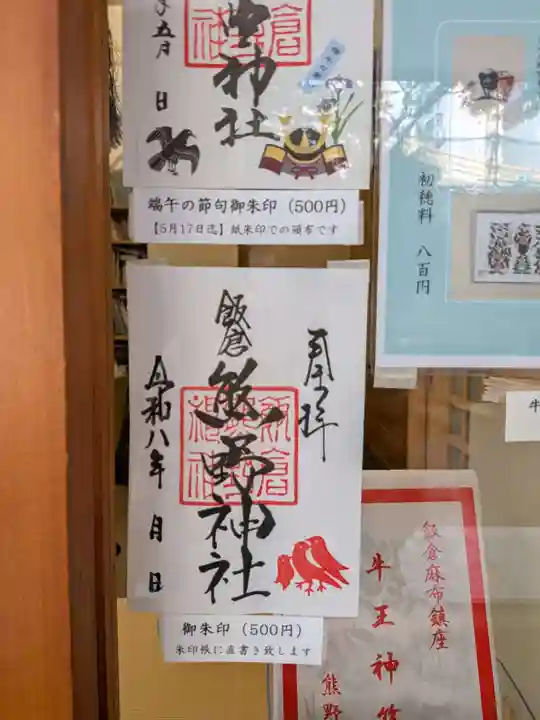 五月
日
神社
端午の節句御朱印（500円）
【5月17日迄】紙朱印での頒布です
初穂料 八百円
奉拝
飯倉
熊野神社
令和八年 月 日
御朱印（500円）
朱印帳に直書き致します
飯倉麻布鎮座
牛王神
熊野
牛